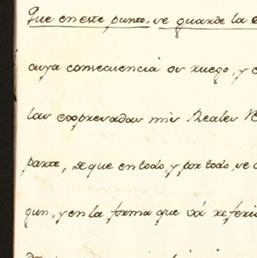 Que en este punto, se guarde la
cuya consecuencia os ruego, y
las expresadas mis Reales
parte, de que en todo, y por todo, se
gun, y en la forma que vá referi